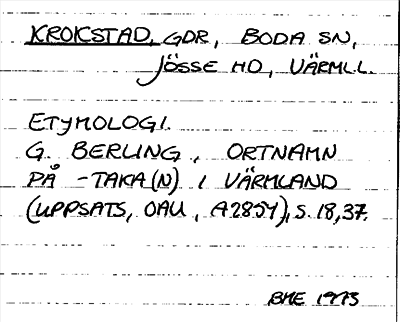 KROKSTAD, GDR, BODA SN,
JÖSSE HD, VÄRML.
ETYMOLOGI.
G. BERLING, ORTNAMN
PÅ -TAKA(N) I VÄRMLAND
(UPPSATS, OAU, A2854), S. 18, 37.
BME 1973